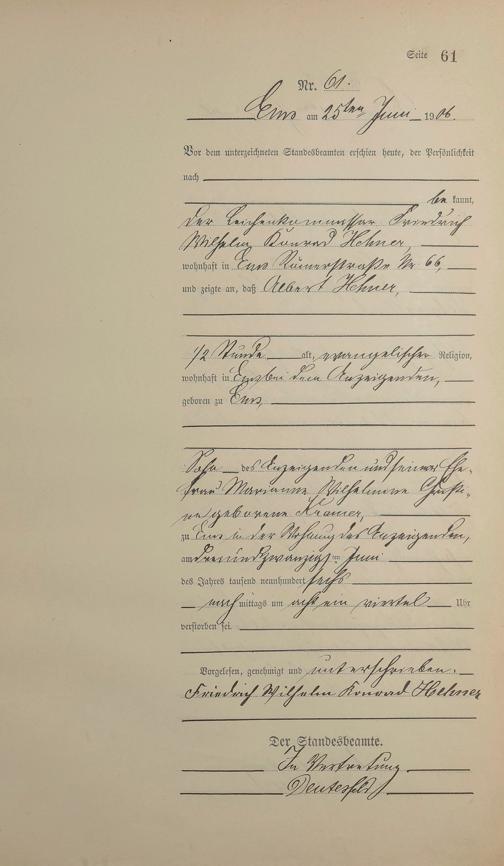 Seite 61
Nr. 61.
Ems am 25ten Juni 1906.
Vor dem unterzeichneten Standesbeamten erschien heute, der Persönlichkeit
nach
bekannt,
der Leichenkommissar Friedrich
Wilhelm Konrad Hehner,
wohnhaft in Ems Römerstraße Nr 66,
und zeigte an, daß Albert Hehner,
1/2 Stunde alt, evangelischer Religion,
wohnhaft in Ems bei dem Anzeigenden,
geboren zu Ems,
Sohn des Anzeigenden und seiner Ehe-
frau Marianne Wilhelmine Christi-
ne geborene Kramer,
zu Ems in der Wohnung des Anzeigenden,
am dreiundzwanzigsten Juni
des Jahres tausend neunhundert sechs
nachmittags um acht ein viertel Uhr
verstorben sei.
Vorgelesen, genehmigt und unterschrieben.
Friedrich Wilhelm Konrad Hehner
Der Standesbeamte.
In Vertretung